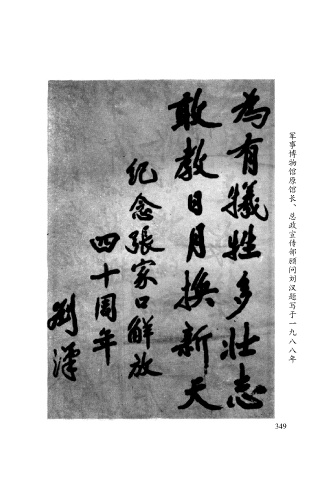 为有犠牲多壮志
敢教日月换新天
纪念张家口解放
四十周年
刘汉
军事博物馆原馆长、总政宣传部顾问刘汉题写于一九八八年
349